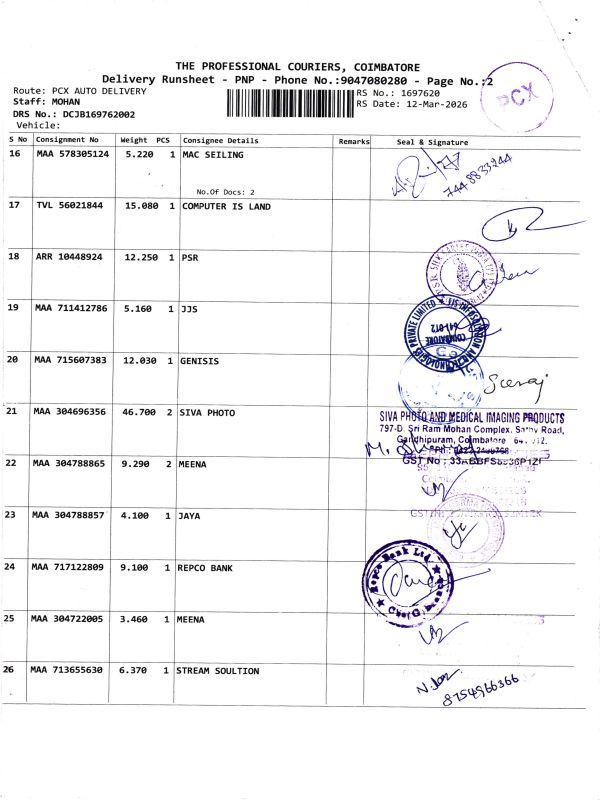 THE PROFESSIONAL COURIERS, COIMBATORE
Delivery Runsheet - PNP - Phone No.:9047080280 - Page No.:2
Route: PCX AUTO DELIVERY
RS No.: 1697620
Staff: MOHAN
RS Date: 12-Mar-2026
DRS No.: DCJB169762002
Vehicle:
PCX
S No Consignment No Weight PCS Consignee Details Remarks Seal & Signature
16 MAA 578305124 5.220 1 MAC SEILING
No.Of Docs: 2
7448833244
17 TVL 56021844 15.080 1 COMPUTER IS LAND
18 ARR 10448924 12.250 1 PSR
19 MAA 711412786 5.160 1 JJS
PRIVATE LIMITED
COIMBATORE
641-012
20 MAA 715607383 12.030 1 GENISIS
Sooraj
21 MAA 304696356 46.700 2 SIVA PHOTO
SIVA PHOTO AND MEDICAL IMAGING PRODUCTS
797-D, Sri Ram Mohan Complex, Sathy Road,
Gandhipuram, Coimbatore
22 MAA 304788865 9.290 2 MEENA
GST No
23 MAA 304788857 4.100 1 JAYA
24 MAA 717122809 9.100 1 REPCO BANK
Repco Bank Ltd.
25 MAA 304722005 3.460 1 MEENA
26 MAA 713655630 6.370 1 STREAM SOULTION
8754966366